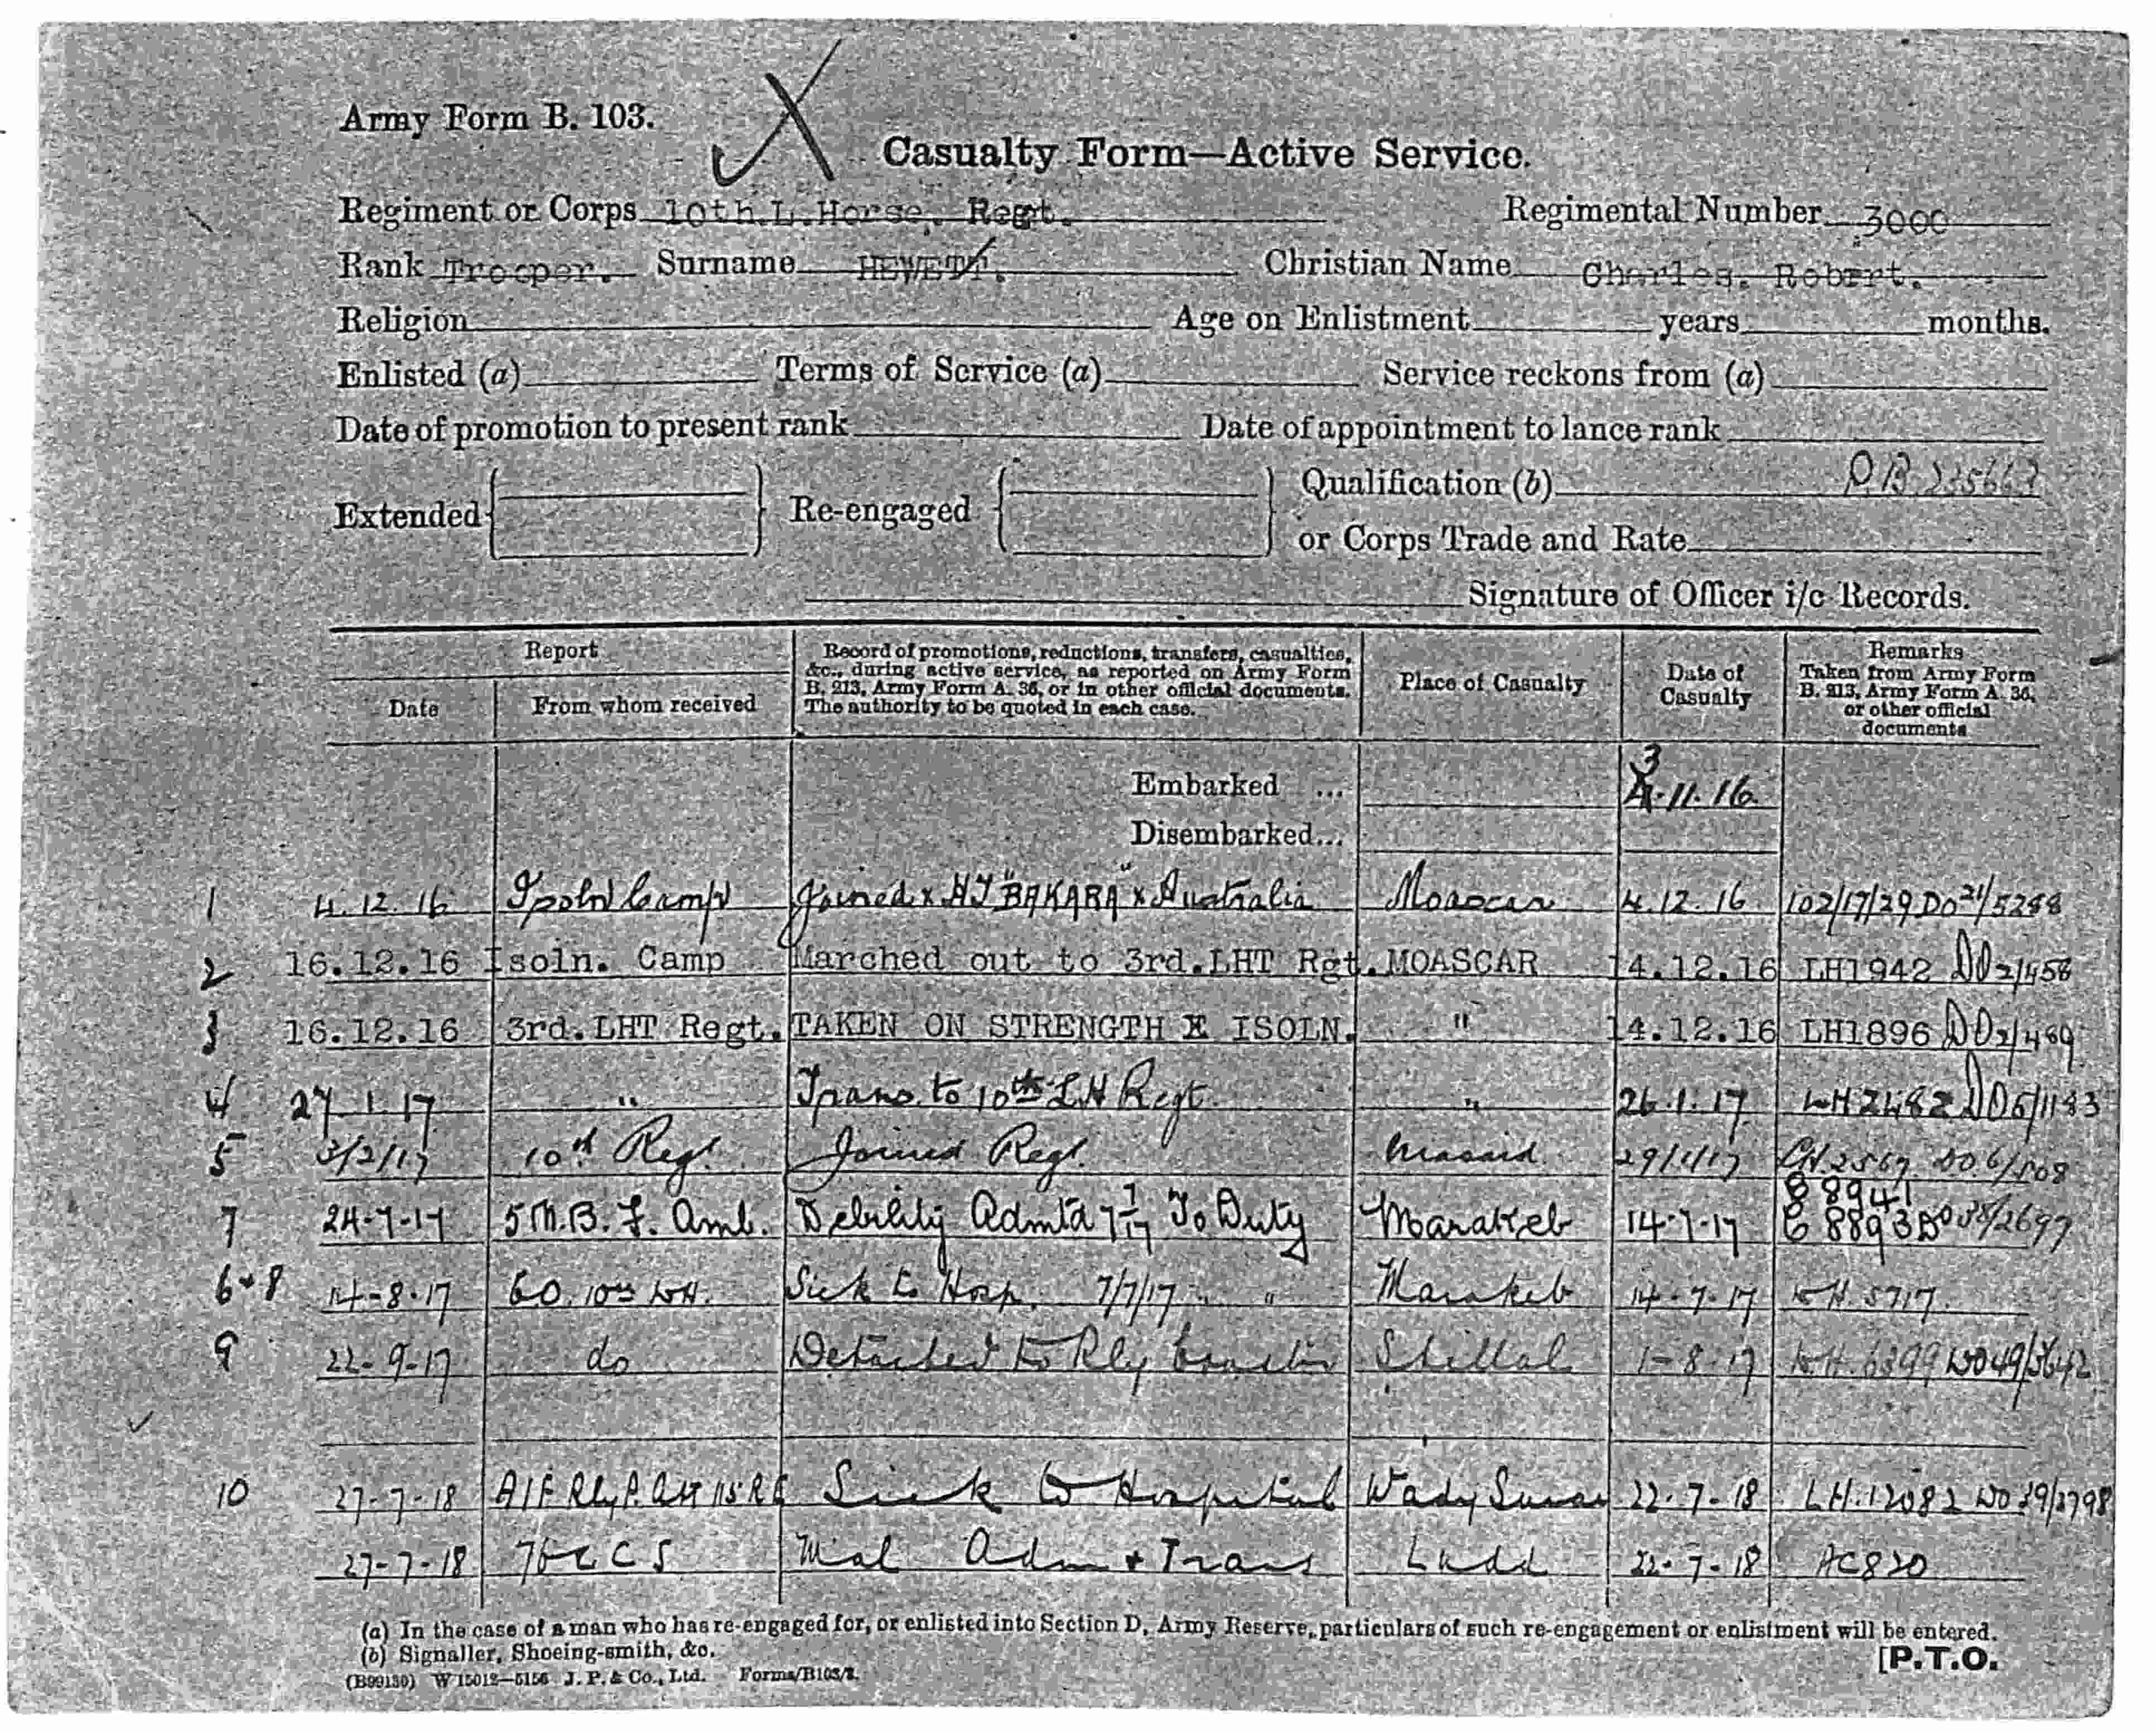 Army Form B. 103.
Casualty Form—Active Service.
Regiment or Corps 10th.L.Horse. Regt. Regimental Number 3000
Rank Trooper. Surname HEWETT. Christian Name Charles. Robert.
Religion Age on Enlistment years months.
Enlisted (a) Terms of Service (a) Service reckons from (a)
Date of promotion to present rank Date of appointment to lance rank
Extended Re-engaged Qualification (b)
or Corps Trade and Rate
Signature of Officer i/c Records.
Report
Date From whom received
Record of promotions, reductions, transfers, casualties,
&c., during active service, as reported on Army Form
B. 213, Army Form A. 36, or in other official documents.
The authority to be quoted in each case.
Place of Casualty
Date of
Casualty
Remarks
Taken from Army Form
B. 213, Army Form A. 36,
or other official
documents
Embarked ... 3.11.16
Disembarked...
1 4.12.16 Isoln Camp Joined x HT "BAKARA" x Australia Moascar 4.12.16 102/17/29 DO 21/5288
2 16.12.16 Isoln. Camp Marched out to 3rd.LHT Rgt. MOASCAR 14.12.16 LH1942 DD2/458
3 16.12.16 3rd.LHT Regt. TAKEN ON STRENGTH X ISOLN. " 14.12.16 LH1896 DD2/489
4 27.1.17 " Trans to 10th LH Regt. " 26.1.17 LH2482 DD5/1183
5 3/2/17 10th Regt. Joined Regt. Masaid 29/1/17 2567 DO.6/
7 24-7-17 5 M.B. F. Amb. Debility Admtd 7/7/17 To Duty Marakeb 14-7-17 8941 8893 DO 38/2697
6+8 14-8-17 CO. 10th LH. Sick to Hosp. 7/7/17 " " Marakeb 14-7-17 LH.5717
9 22-9-17 do Detached to Rly Shellal 1-8-17 LH.6399 DO49/3642
10 27-7-18 AIF Rly 115 Sick to Hospital Wady Surar 22-7-18 LH.12082 DO 39/2798
27-7-18 76 CCS Mal Adm + Trans Ludd 22-7-18 AC820
(a) In the case of a man who has re-engaged for, or enlisted into Section D, Army Reserve, particulars of such re-engagement or enlistment will be entered.
(b) Signaller, Shoeing-smith, &c.
[P.T.O.
(B99130) W 15012—5156 J. P. & Co., Ltd. Forms/B103/2.